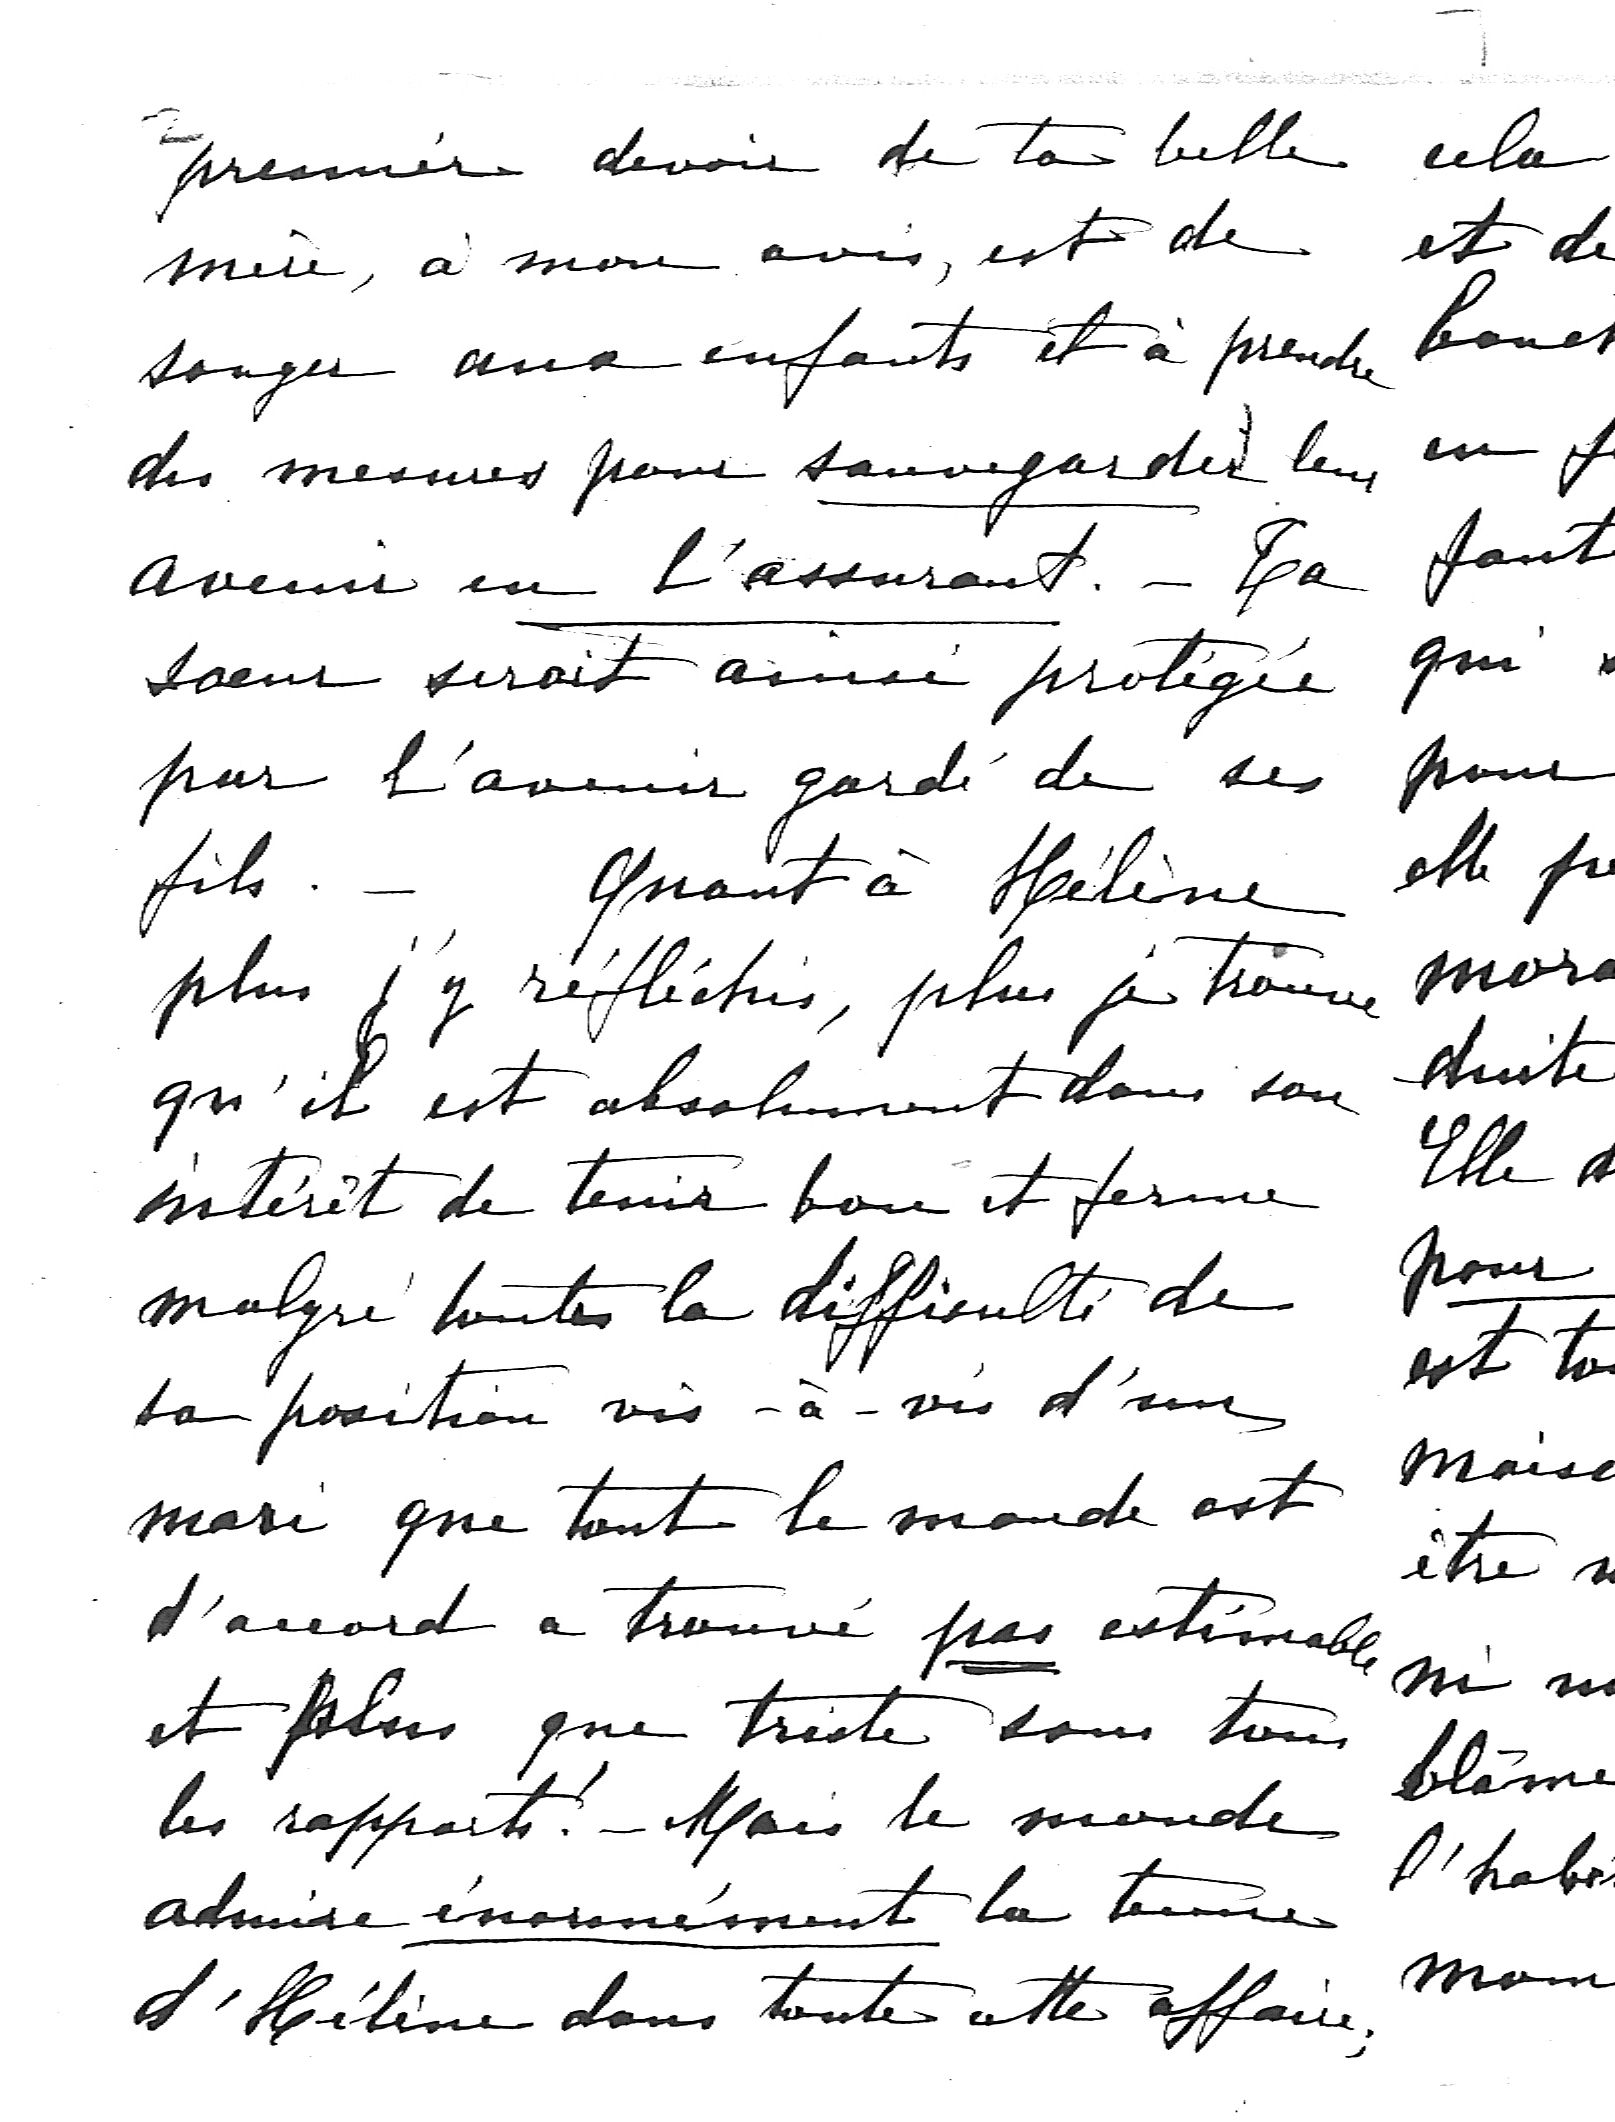 2
premier devoir de ta belle
mère, à mon avis, est de
songer aux enfants et à prendre
des mesures pour sauvegarder leur
avenir en l'assurant. - Ta
sœur serait ainsi protégée
par l'avenir gardé de ses
fils. - Quant à Hélène
plus j'y réfléchis, plus je trouve
qu'il est absolument dans son
intérêt de tenir bon et ferme
malgré toutes la difficulté de
sa position vis-à-vis d'un
mari que tout le monde est
d'accord a trouvé pas estimable
et plus que triste sous tous
les rapports! - Mais le monde
admire énormément la tenue
d'Hélène dans toute cette affaire;
cela
et de
en f
qui s
pour
elle pe
mora
duite
Elle d
pour
est to
maiso
être n
ni n
blâme
l'habi